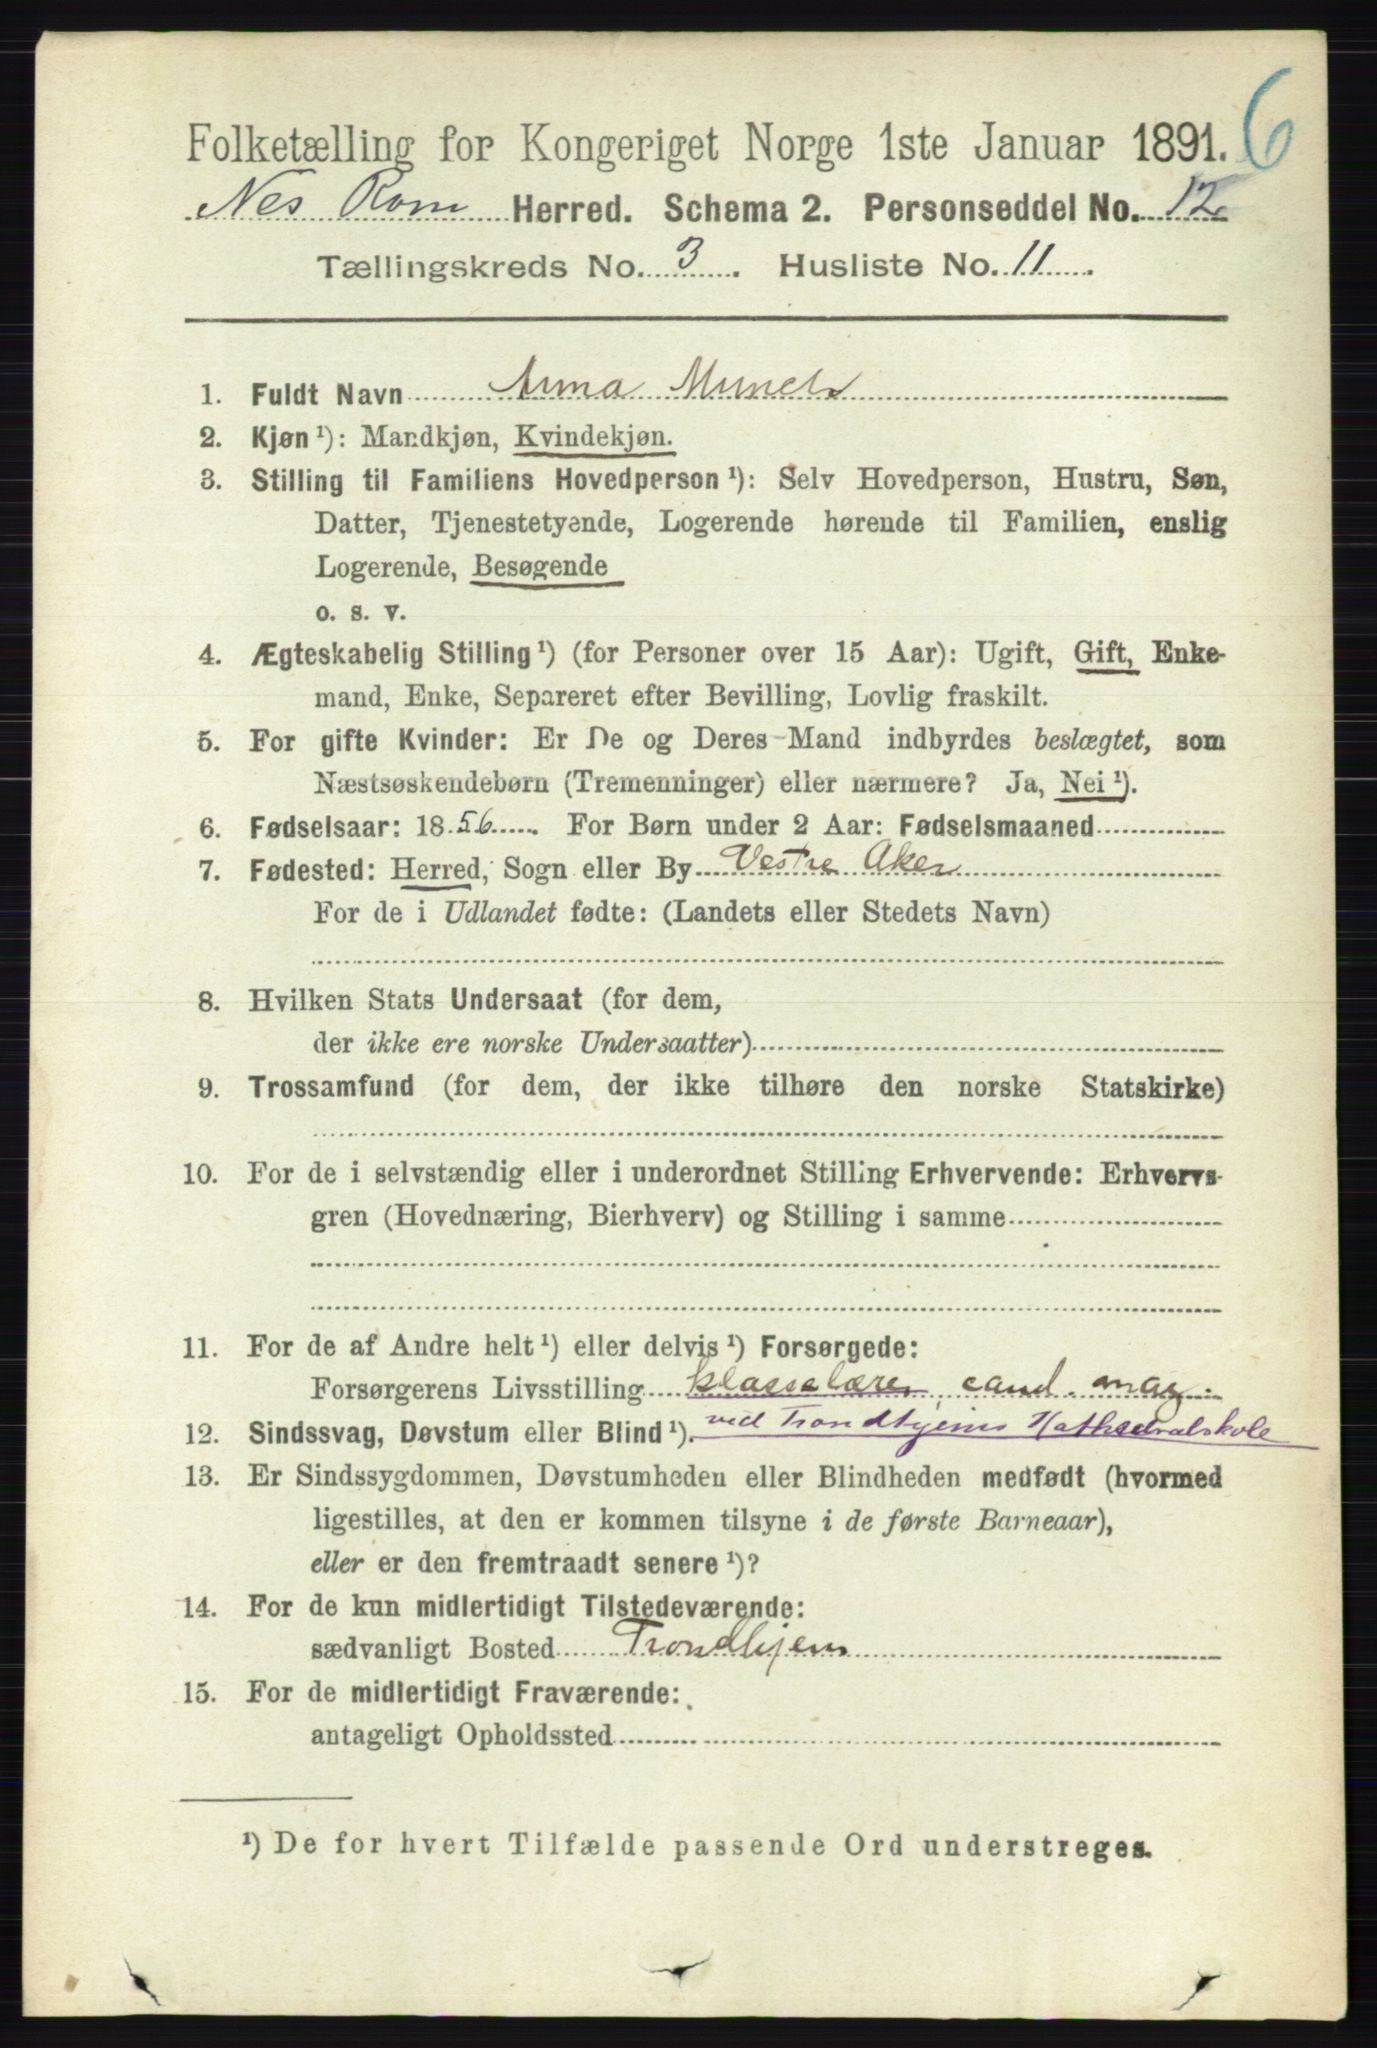 6
Folketælling for Kongeriget Norge 1ste Januar 1891.
Nes Rom Herred. Schema 2. Personseddel No. 12
Tællingskreds No. 3. Husliste No. 11.
1. Fuldt Navn Anna Munch
2. Kjøn ¹): Mandkjøn, Kvindekjøn.
3. Stilling til Familiens Hovedperson ¹): Selv Hovedperson, Hustru, Søn,
Datter, Tjenestetyende, Logerende hørende til Familien, enslig
Logerende, Besøgende
o. s. v.
4. Ægteskabelig Stilling ¹) (for Personer over 15 Aar): Ugift, Gift, Enke-
mand, Enke, Separeret efter Bevilling, Lovlig fraskilt.
5. For gifte Kvinder: Er De og Deres Mand indbyrdes beslægtet, som
Næstsøskendebørn (Tremenninger) eller nærmere? Ja, Nei ¹).
6. Fødselsaar: 1856. For Børn under 2 Aar: Fødselsmaaned
7. Fødested: Herred, Sogn eller By Vestre Aker
For de i Udlandet fødte: (Landets eller Stedets Navn)
8. Hvilken Stats Undersaat (for dem,
der ikke ere norske Undersaatter)
9. Trossamfund (for dem, der ikke tilhøre den norske Statskirke)
10. For de i selvstændig eller i underordnet Stilling Erhvervende: Erhvervs-
gren (Hovednæring, Bierhverv) og Stilling i samme
11. For de af Andre helt ¹) eller delvis ¹) Forsørgede:
Forsørgerens Livsstilling klasselærer, cand. mag.
12. Sindssvag, Døvstum eller Blind ¹). ved Trondhjems Kathedralskole
13. Er Sindssygdommen, Døvstumheden eller Blindheden medfødt (hvormed
ligestilles, at den er kommen tilsyne i de første Barneaar),
eller er den fremtraadt senere ¹)?
14. For de kun midlertidigt Tilstedeværende:
sædvanligt Bosted Trondhjem
15. For de midlertidigt Fraværende:
antageligt Opholdssted
¹) De for hvert Tilfælde passende Ord understreges.